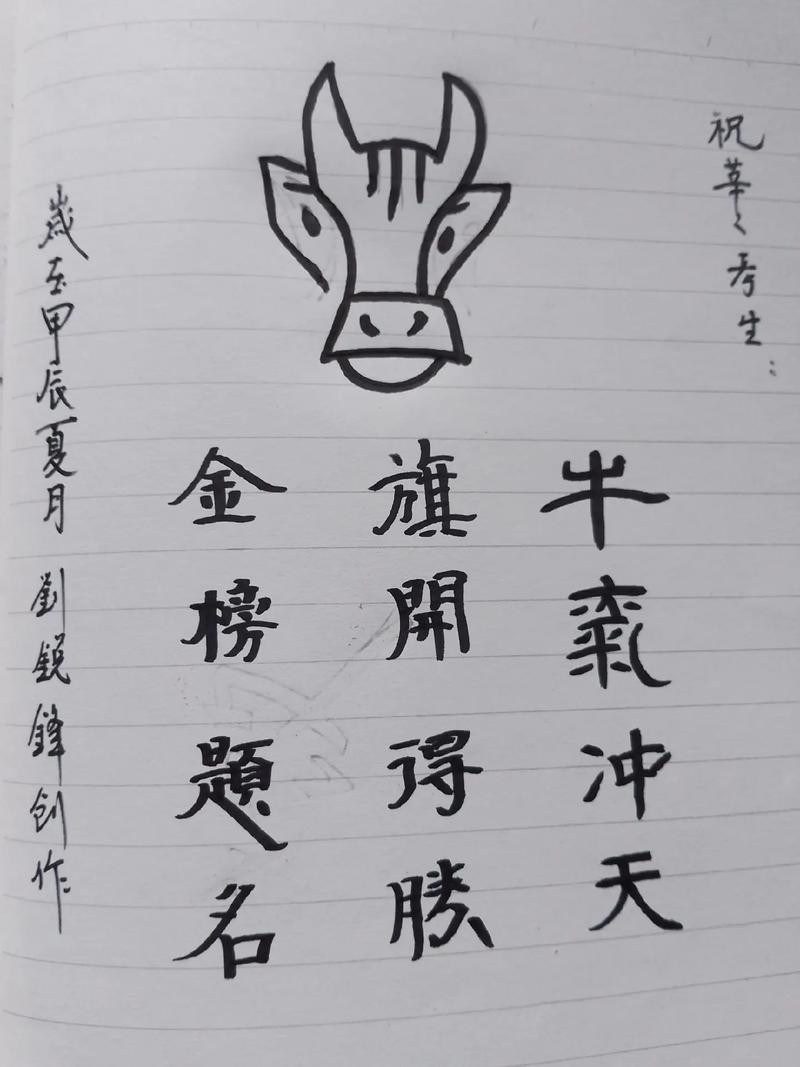 祝莘々考生：
牛氣冲天
旗開得勝
金榜題名
歲在甲辰夏月 劉鋭鋒创作